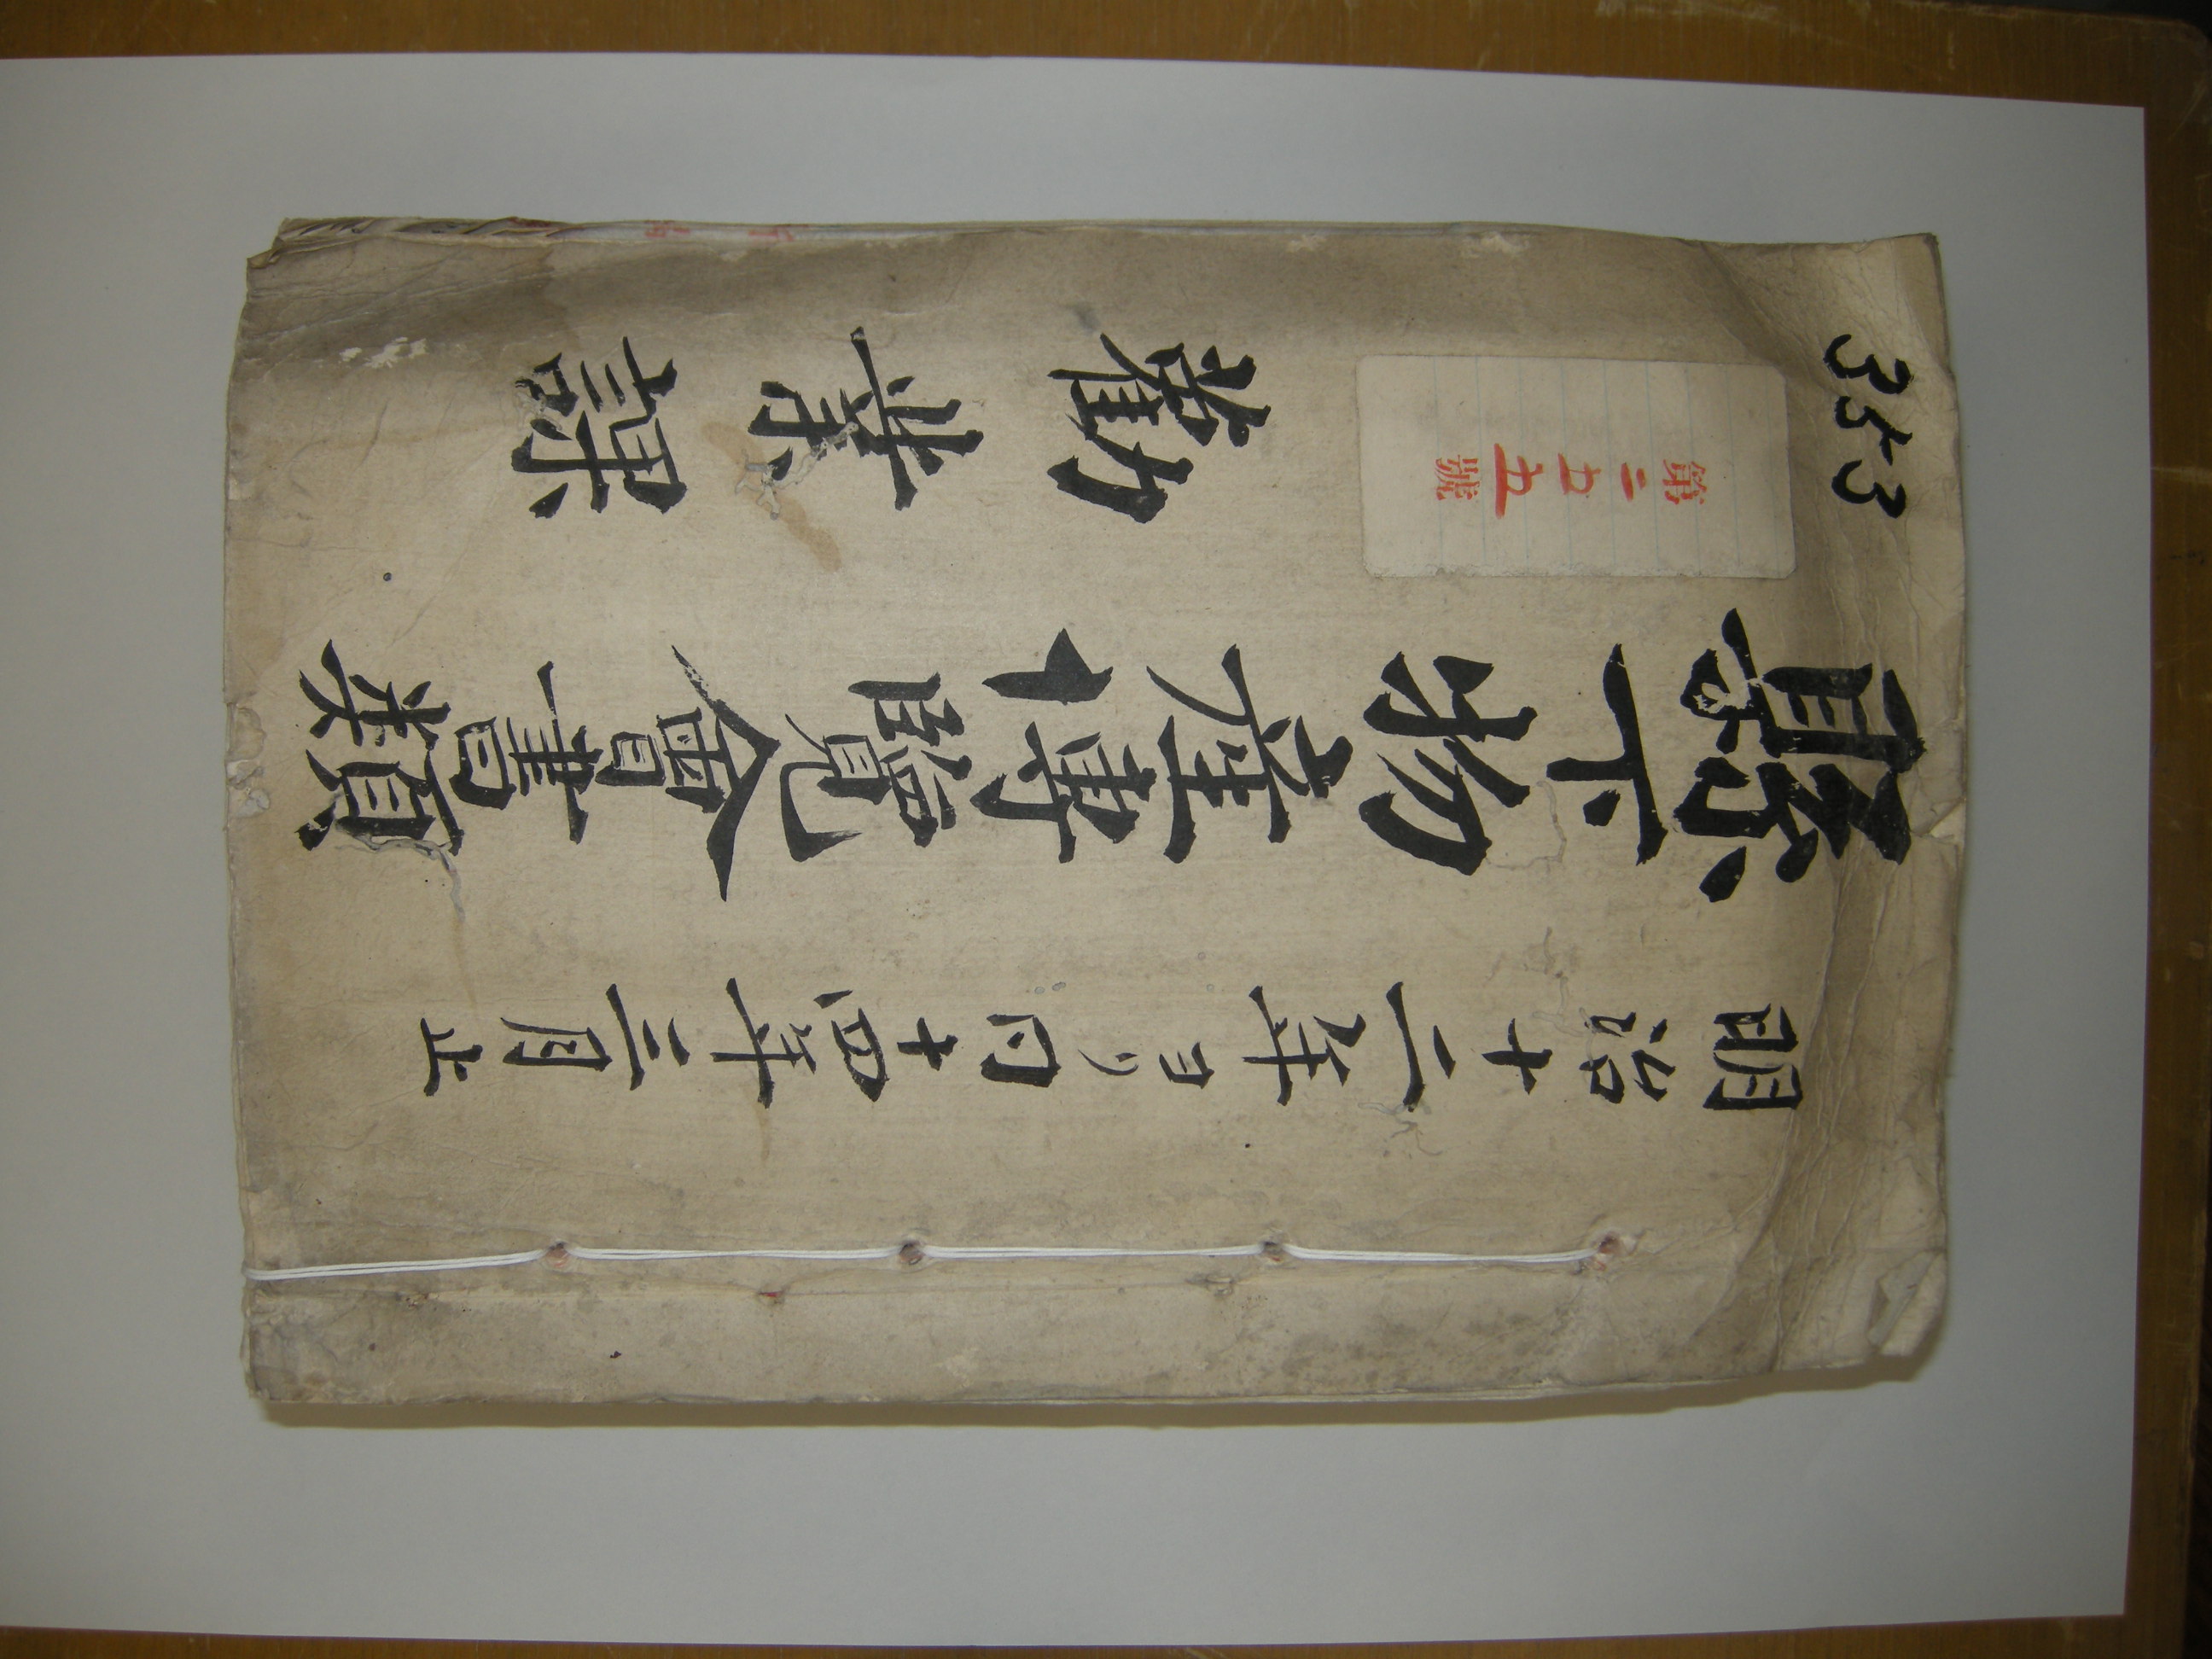 明治十二年ヨリ同十四年三月止
縣下物産博覽會書類
勸業課
第二五五號
353